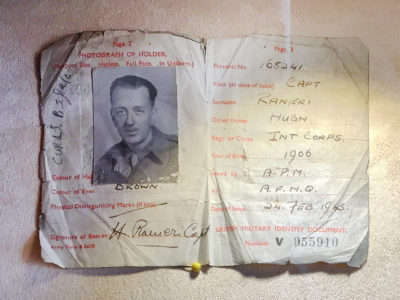 Page 2
PHOTOGRAPH OF HOLDER.
(Passport Size. Hatless. Full Face. In Uniform.)
Colour of
Colour of Eyes BROWN
Physical Distinguishing Marks (if any)
Signature of Bearer H Ranieri Capt
Army Form B 2606
Page 3
Personal No. 168241
Rank (at date of issue) CAPT
Surname RANIERI
Other Names HUGH
Regt. or Corps INT CORPS.
Year of Birth 1906
Issued by A.P.M.
At A.F.H.Q.
Date of Issue 24. FEB. 1943.
BRITISH MILITARY IDENTITY DOCUMENT.
Number V 955910